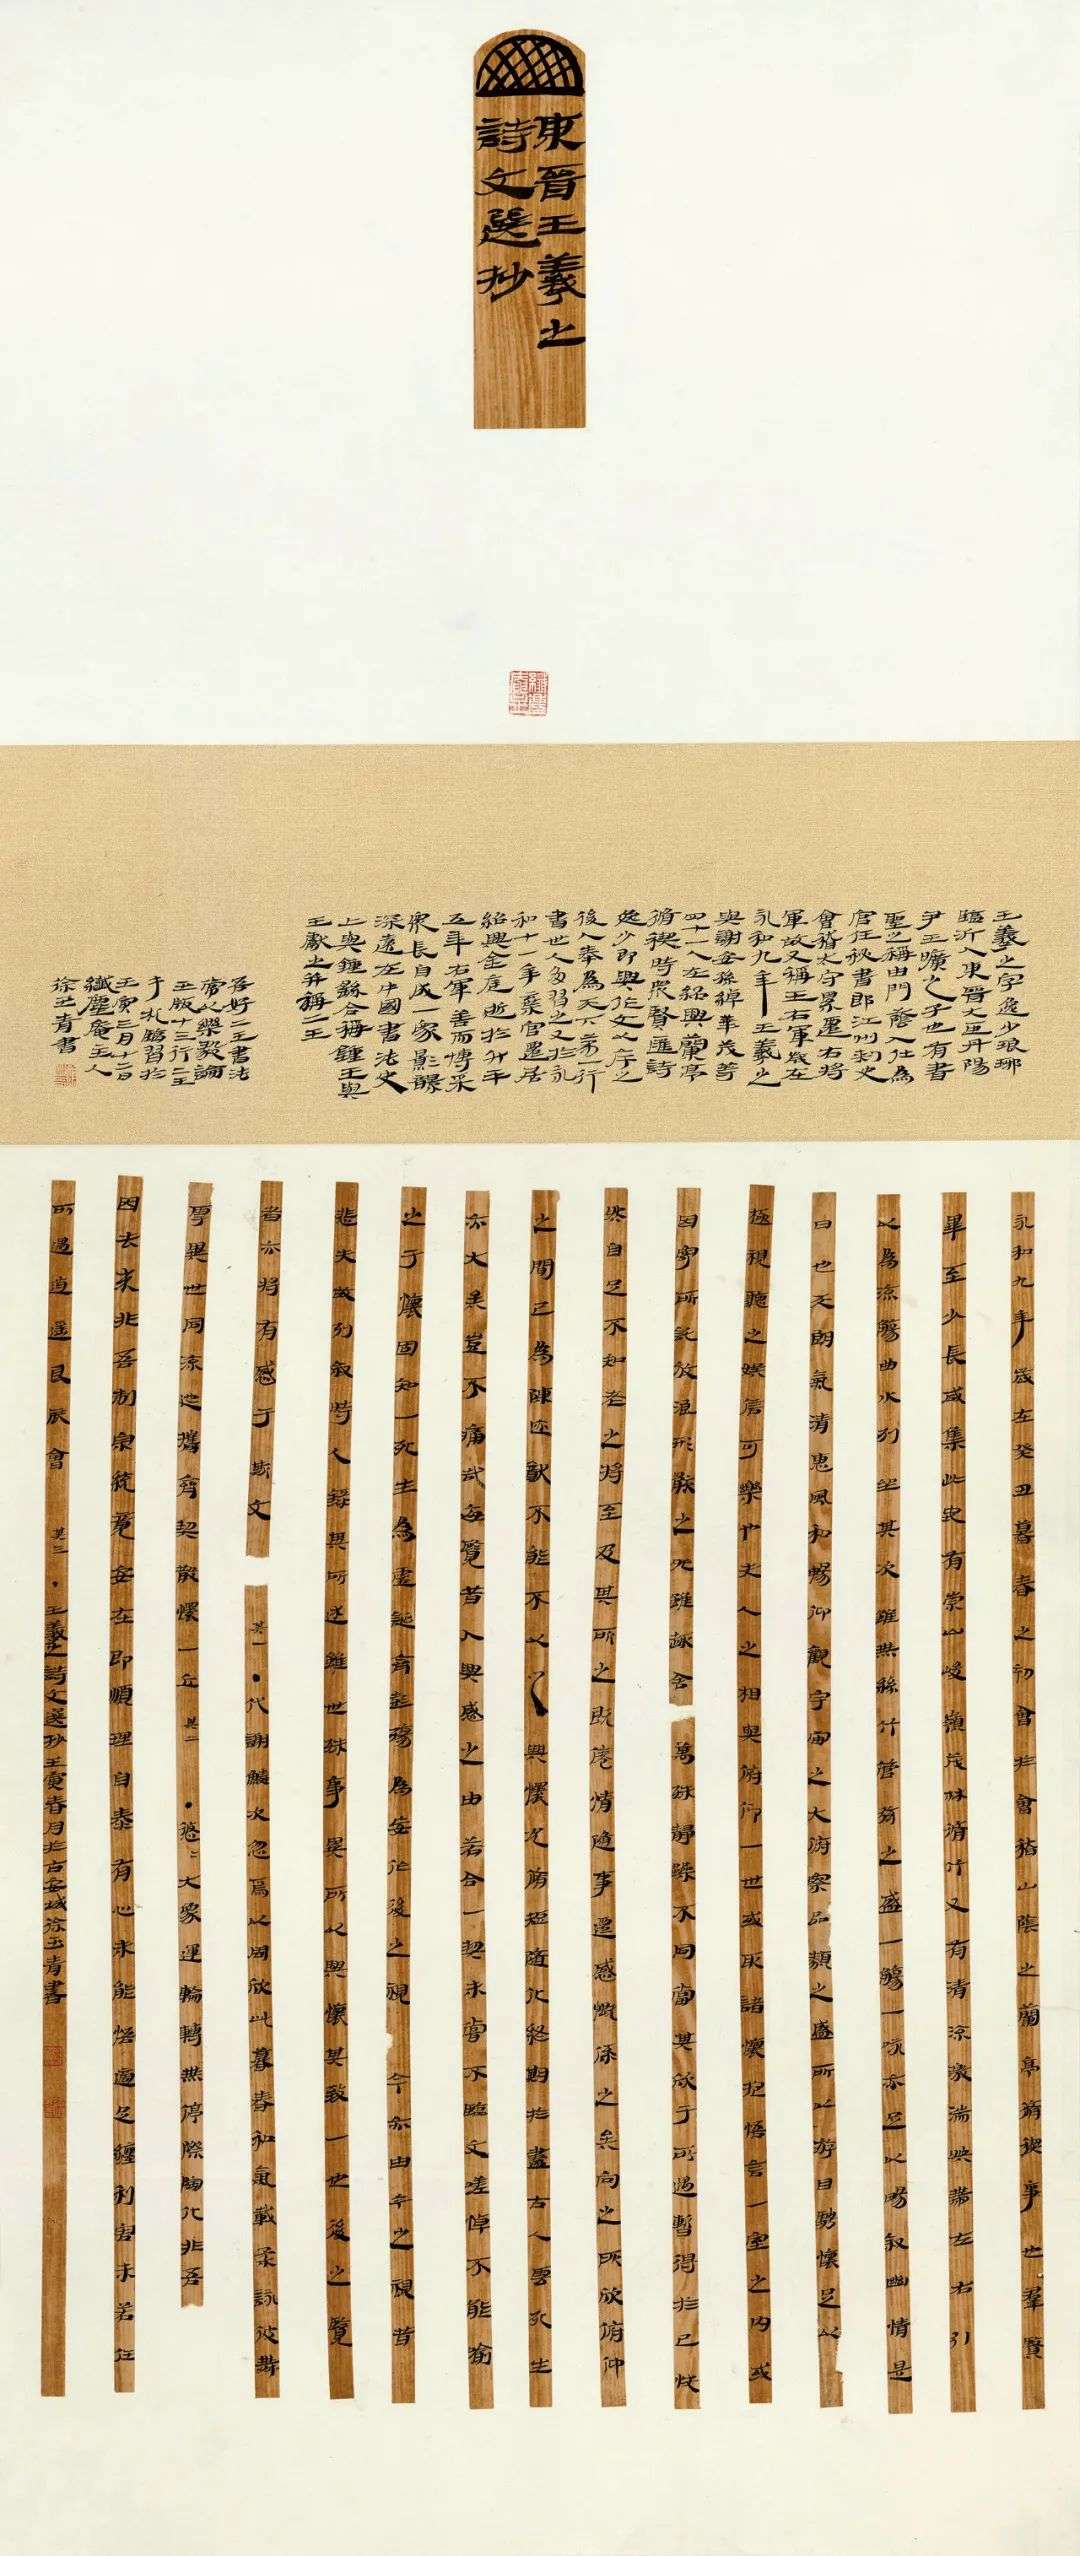 東晉王羲之
詩文選抄
王羲之字逸少琅琊
臨沂人東晉大臣丹陽
尹王曠之子也有書
聖之稱由門蔭入仕為
官任秘書郎江州刺史
會稽太守累遷右將
軍故又稱王右軍歲在
永和九年王羲之
與謝安孫綽華茂等
四十一人在紹興蘭亭
脩禊時眾賢匯詩
逸少即興作文以序之
後人奉為天下第一行
書世人多習之又於永
和十一年棄官遷居
紹興金庭逝於升平
五年右軍善而博采
眾長自成一家影響
深遠在中國書法史
上與鍾繇合稱鍾王與
王獻之並稱二王
吾好二王書法
嘗以樂毅論
玉版十三行二王
手札臨習於
壬寅三月十二日
纖塵庵主人
徐玉青書
永和九年歲在癸丑暮春之初會於會稽山陰之蘭亭脩禊事也羣賢
畢至少長咸集此地有崇山峻嶺茂林脩竹又有清流激湍映帶左右引
以為流觴曲水列坐其次雖無絲竹管弦之盛一觴一詠亦足以暢叙幽情是
日也天朗氣清惠風和暢仰觀宇宙之大俯察品類之盛所以游目騁懷足以
極視聽之娛信可樂也夫人之相與俯仰一世或取諸懷抱悟言一室之內或
因寄所託放浪形骸之外雖趣舍萬殊靜躁不同當其欣于所遇暫得於己快
然自足不知老之將至及其所之既惓情隨事遷感慨係之矣向之所欣俯仰
之間已為陳迹猶不能不以之興懷況脩短隨化終期於盡古人云死生
亦大矣豈不痛哉每覽昔人興感之由若合一契未嘗不臨文嗟悼不能喻
之于懷固知一死生為虛誕齊彭殤為妄作後之視今亦由今之視昔
悲夫故列叙時人錄其所述雖世殊事異所以興懷其致一也後之覽
者亦將有感于斯文 其一 ·代謝鱗次忽焉以周欣此暮春和氣載柔詠彼舞
雩異世同流迺攜齊契散懷一丘 其二 ·悠〻大象運輪轉無停際陶化非吾
因去來非吾制宗統竟安在即順理自泰有心未能悟適足纏利害未若任
所遇逍遙良辰會 其三 ·王羲之詩文選抄壬寅春月於古安城徐玉青書